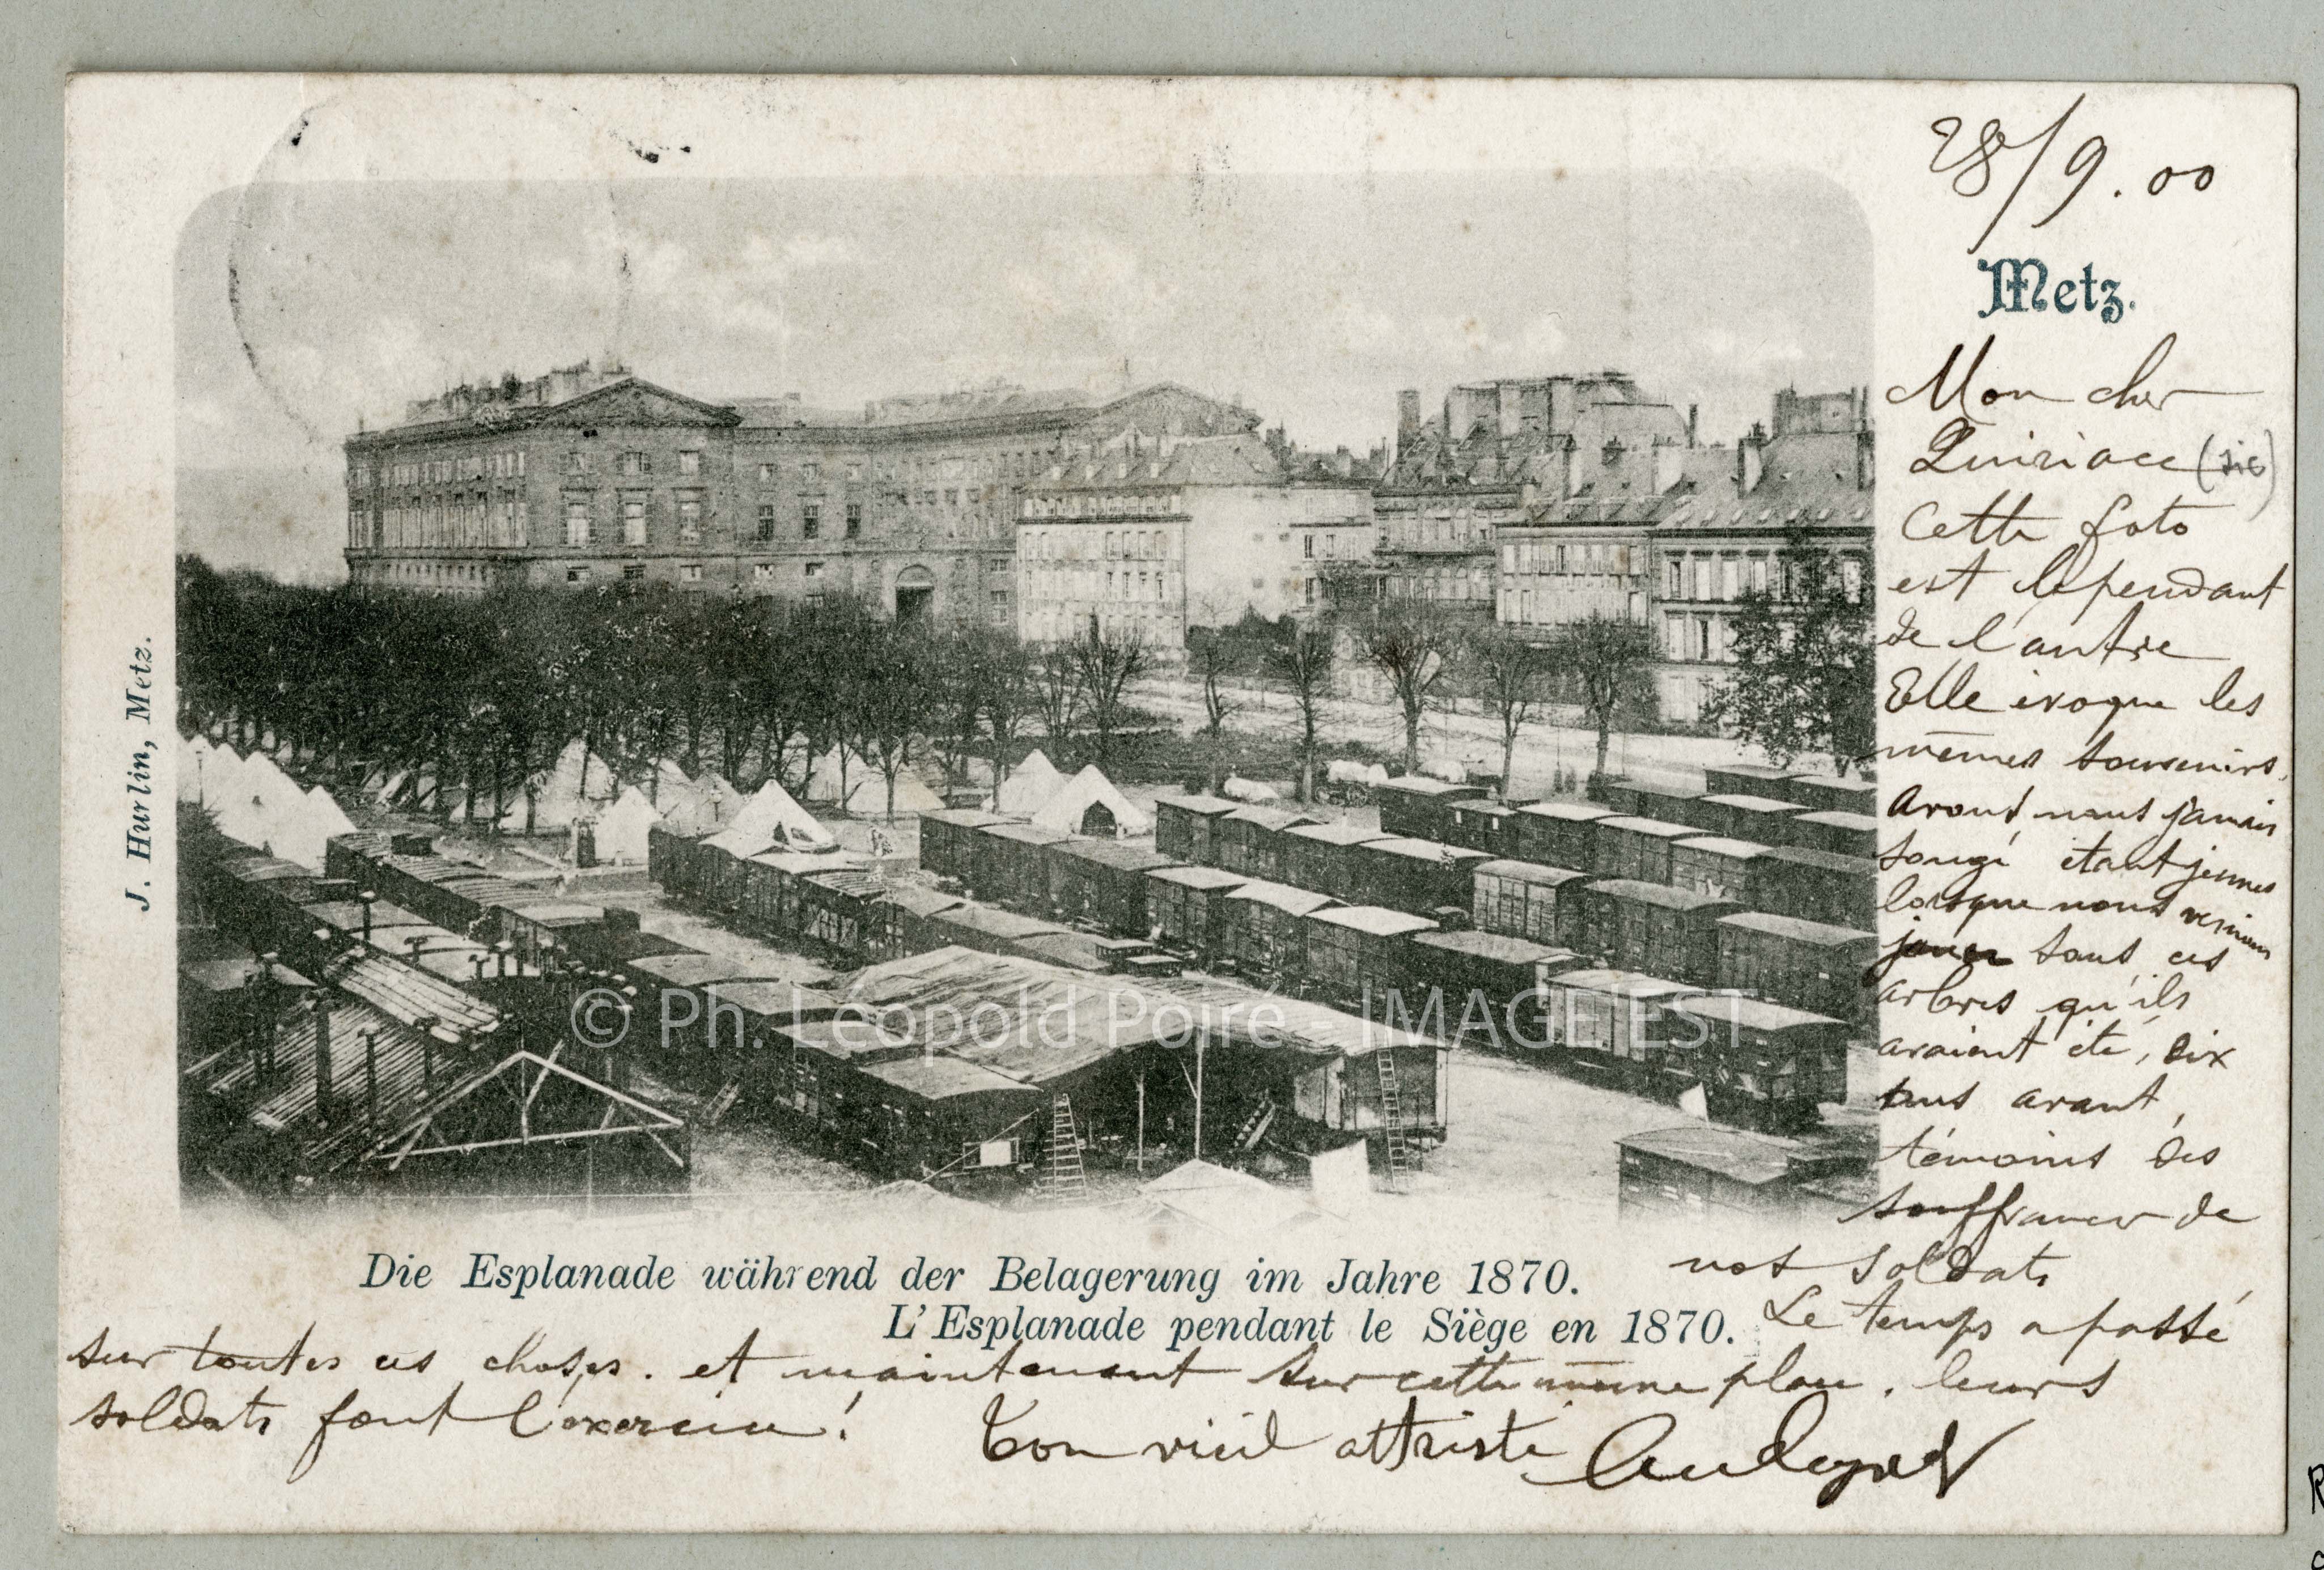 28/9.00
Metz.
Mon cher
Quiriace (sic)
Cette foto
est le pendant
de l'autre
Elle évoque les
mêmes souvenirs.
Avons nous jamais
songé étant jeunes
lorsque nous venions
jouer sous ces
arbres qu'ils
avaient été, dix
ans avant,
témoins des
souffrances de
nos soldats
Le temps a passé
sur toutes ces choses. et maintenant sur cette même place, leurs
soldats font l'exercice!
Ton vieil attristé
Die Esplanade während der Belagerung im Jahre 1870.
L'Esplanade pendant le Siège en 1870.
J. Hurlin, Metz.
© Ph. Léopold Poiré - IMAGE EST